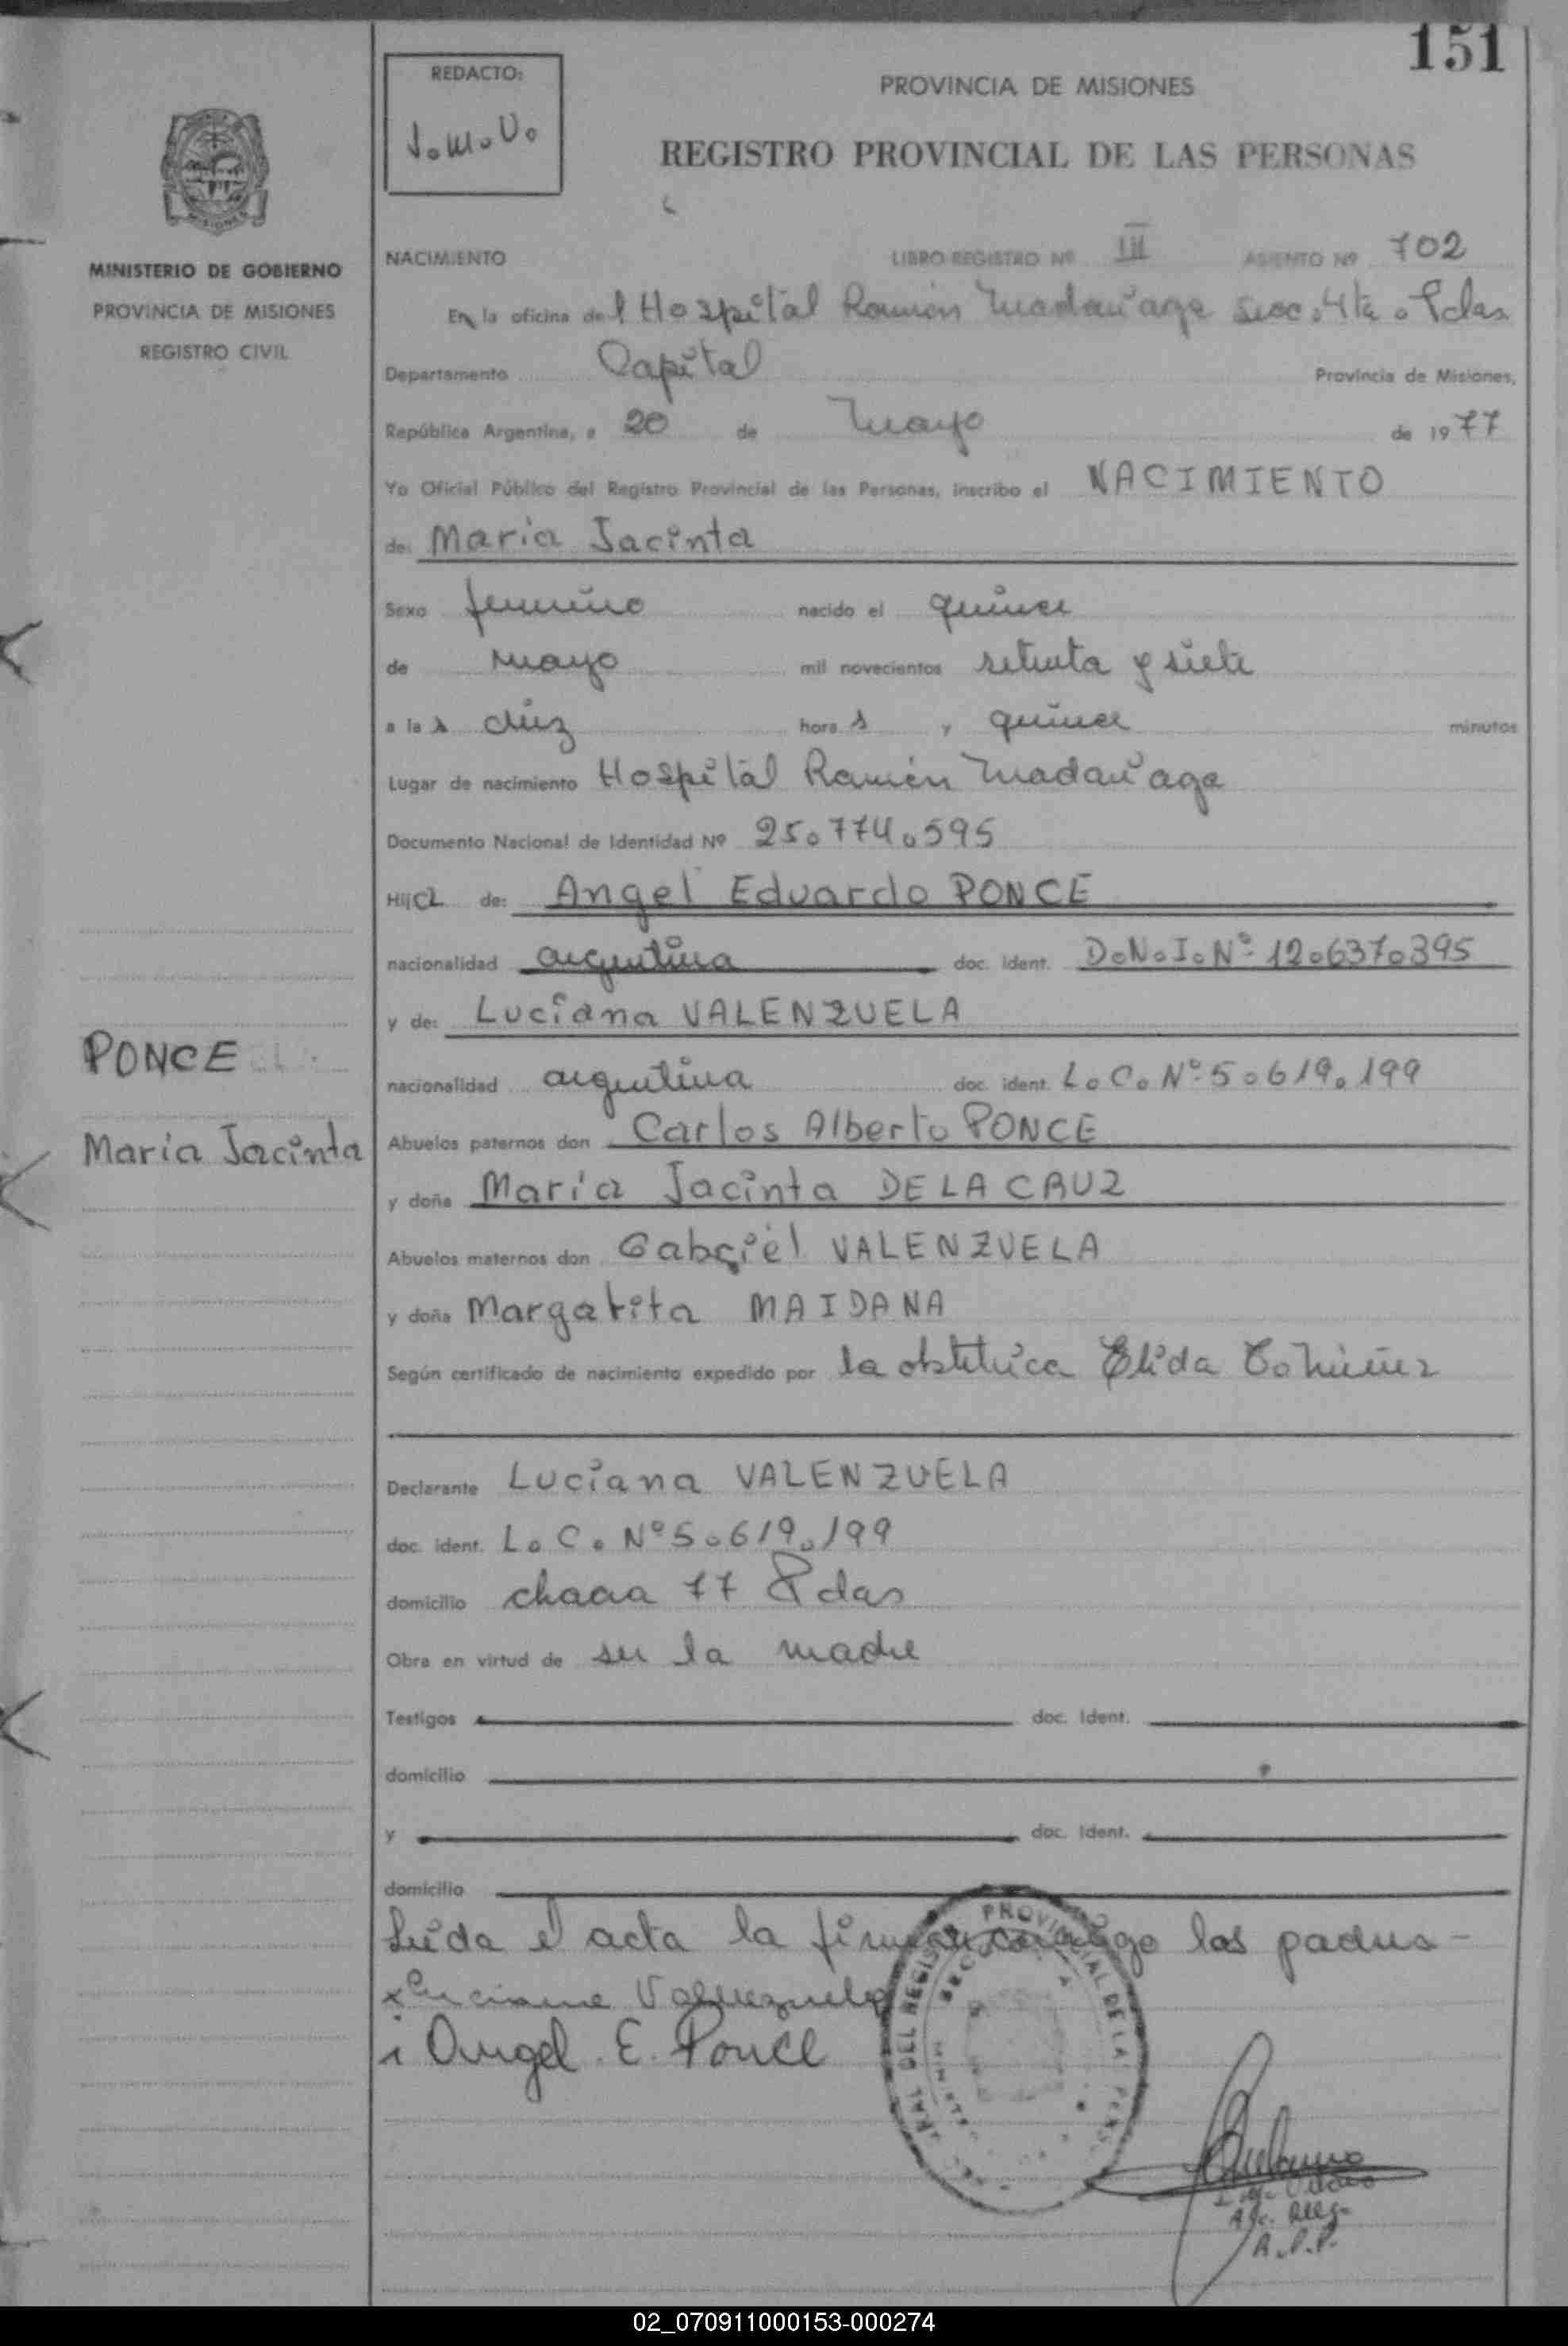 151
REDACTO:
J.M.V.
PROVINCIA DE MISIONES
REGISTRO PROVINCIAL DE LAS PERSONAS
MISIONES
MINISTERIO DE GOBIERNO
PROVINCIA DE MISIONES
REGISTRO CIVIL
NACIMIENTO LIBRO REGISTRO Nº III ASIENTO Nº 702
En la oficina del Hospital Ramón Madariaga Secc. 4ta. Pdas
Departamento Capital Provincia de Misiones,
República Argentina, a 20 de Mayo de 1977
Yo Oficial Público del Registro Provincial de las Personas, inscribo el NACIMIENTO
de: Maria Jacinta
Sexo femenino nacido el quince
de mayo mil novecientos setenta y siete
a las diez horas y quince minutos
Lugar de nacimiento Hospital Ramón Madariaga
Documento Nacional de Identidad Nº 25.774.595
Hija de: Angel Eduardo PONCE
nacionalidad argentina doc. ident. D.N.I. Nº 12.637.395
y de: Luciana VALENZUELA
nacionalidad argentina doc. ident. L.C. Nº 5.619.199
PONCE
Maria Jacinta
Abuelos paternos don Carlos Alberto PONCE
y doña Maria Jacinta DE LA CRUZ
Abuelos maternos don Gabriel VALENZUELA
y doña Margarita MAIDANA
Según certificado de nacimiento expedido por la obstetrica Elida
Declarante Luciana VALENZUELA
doc. ident. L.C. Nº 5.619.199
domicilio chacra 77 Pdas
Obra en virtud de ser la madre
Testigos doc. Ident.
domicilio
y doc. Ident.
domicilio
Leida el acta la firman conmigo los padres -
x Luciana Valenzuela
Angel E. Ponce
DEL REGISTRO PROVINCIAL DE LA PERS
R.P.P.
02_070911000153-000274